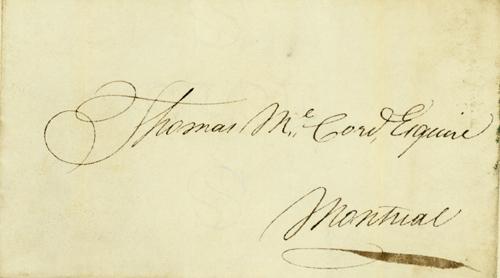 Thomas Mc. Cord, Esquire
Montreal